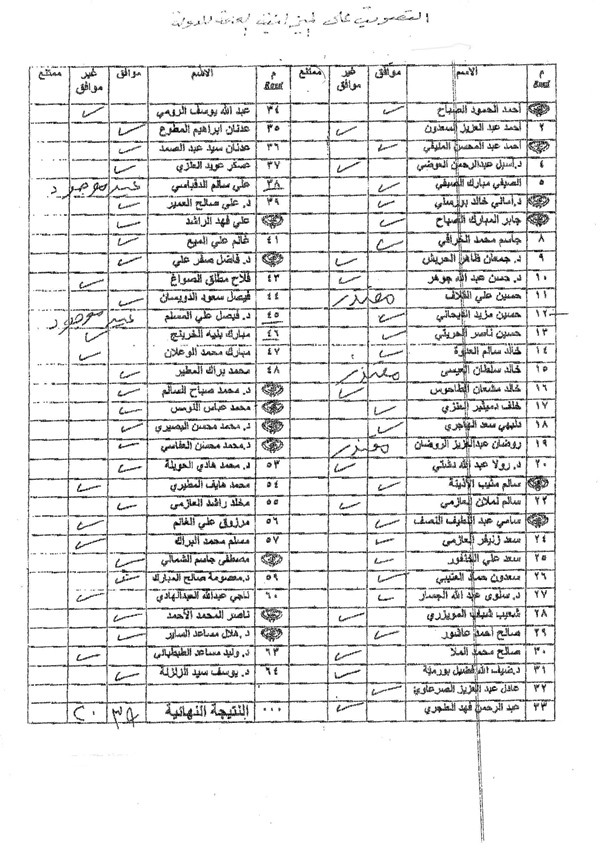 التصويت على ميزانية العامة للدولة
م الاسم موافق غير موافق ممتنع
أحمد الحمود الصباح
٢ أحمد عبد العزيز السعدون
أحمد عبد المحسن المليفي
٤ د.أسيل عبدالرحمن العوضي
٥ الصيفي مبارك الصيفي
د.أماني خالد بورسلي
جابر المبارك الصباح
٨ جاسم محمد الخرافي
٩ د. جمعان ظاهر الحربش
١٠ د. حسن عبد الله جوهر
١١ حسين علي القلاف معتذر
١٢ حسين مزيد
١٣ حسين ناصر الحريتي
١٤ خالد سالم العدوة
١٥ خالد سلطان العيسى معتذر
١٦ خالد مشعان الطاحوس
١٧ خلف دميثير العنزي
١٨ دليهي سعد الهاجري
١٩ روضان عبدالعزيز الروضان معتذر
٢٠ د. رولا عبد الله دشتي
سالم مثيب الأذينة
٢٢ سالم نملان العازمي
سامي عبد اللطيف النصف
٢٤ سعد زنيفر العازمي
٢٥ سعد علي الخنفور
٢٦ سعدون حماد العتيبي
٢٧ د. سلوى عبد الله الجسار
٢٨ شعيب شباب المويزري
٢٩ صالح أحمد عاشور
٣٠ صالح محمد الملا
٣١ د.ضيف الله فضيل بورمية
٣٢ عادل عبد العزيز الصرعاوي
٣٣ عبد الرحمن فهد العنجري
م الاسم موافق غير موافق ممتنع
٣٤ عبد الله يوسف الرومي
٣٥ عدنان ابراهيم المطوع
٣٦ عدنان سيد عبد الصمد
٣٧ عسكر عويد العنزي
٣٨ علي سالم الدقباسي غير موجود
٣٩ د. علي صالح العمير
علي فهد الراشد
٤١ غانم علي الميع
د. فاضل صفر علي
٤٣ فلاح مطلق الصواغ
٤٤ فيصل سعود الدويسان
٤٥ د. فيصل علي المسلم غير موجود
٤٦ مبارك بنيه الخرينج
٤٧ مبارك محمد الوعلان
٤٨ محمد براك المطير
د. محمد صباح السالم
محمد عباس النومس
د. محمد محسن البصيري
د.محمد محسن العفاسي
٥٣ د. محمد هادي الحويلة
٥٤ محمد هايف المطيري
٥٥ مخلد راشد العازمي
٥٦ مرزوق علي الغانم
٥٧ مسلم محمد البراك
مصطفى جاسم الشمالي
٥٩ د.معصومة صالح المبارك
٦٠ ناجي عبدالله العبدالهادي
ناصر المحمد الأحمد
د. هلال مساعد الساير
٦٣ د. وليد مساعد الطبطبائي
٦٤ د. يوسف سيد الزلزلة
٠٠٠ النتيجة النهائية ٣٨ ٢٠